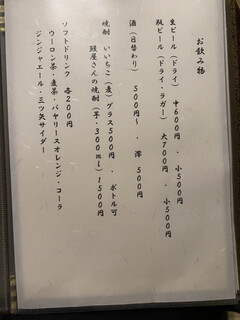 お飲み物
生ビール(ドライ) 中600円 ・ 小500円
瓶ビール(ドライ・ラガー) 大700円 ・ 小500円
酒(日替わり) 500円〜 ・ 澪 500円
焼酎 いいちこ(麦)グラス500円 ・ ボトル可
鰻屋さんの焼酎(芋・300ml)1500円
ソフトドリンク 各200円
ウーロン茶・麦茶・バヤリースオレンジ・コーラ
ジンジャエール・三ツ矢サイダー